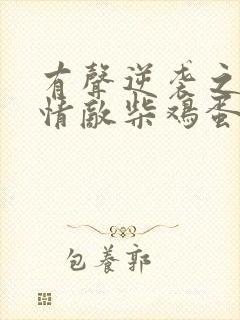 有聲逆袭之
情敵柴鸡蛋
包養郭